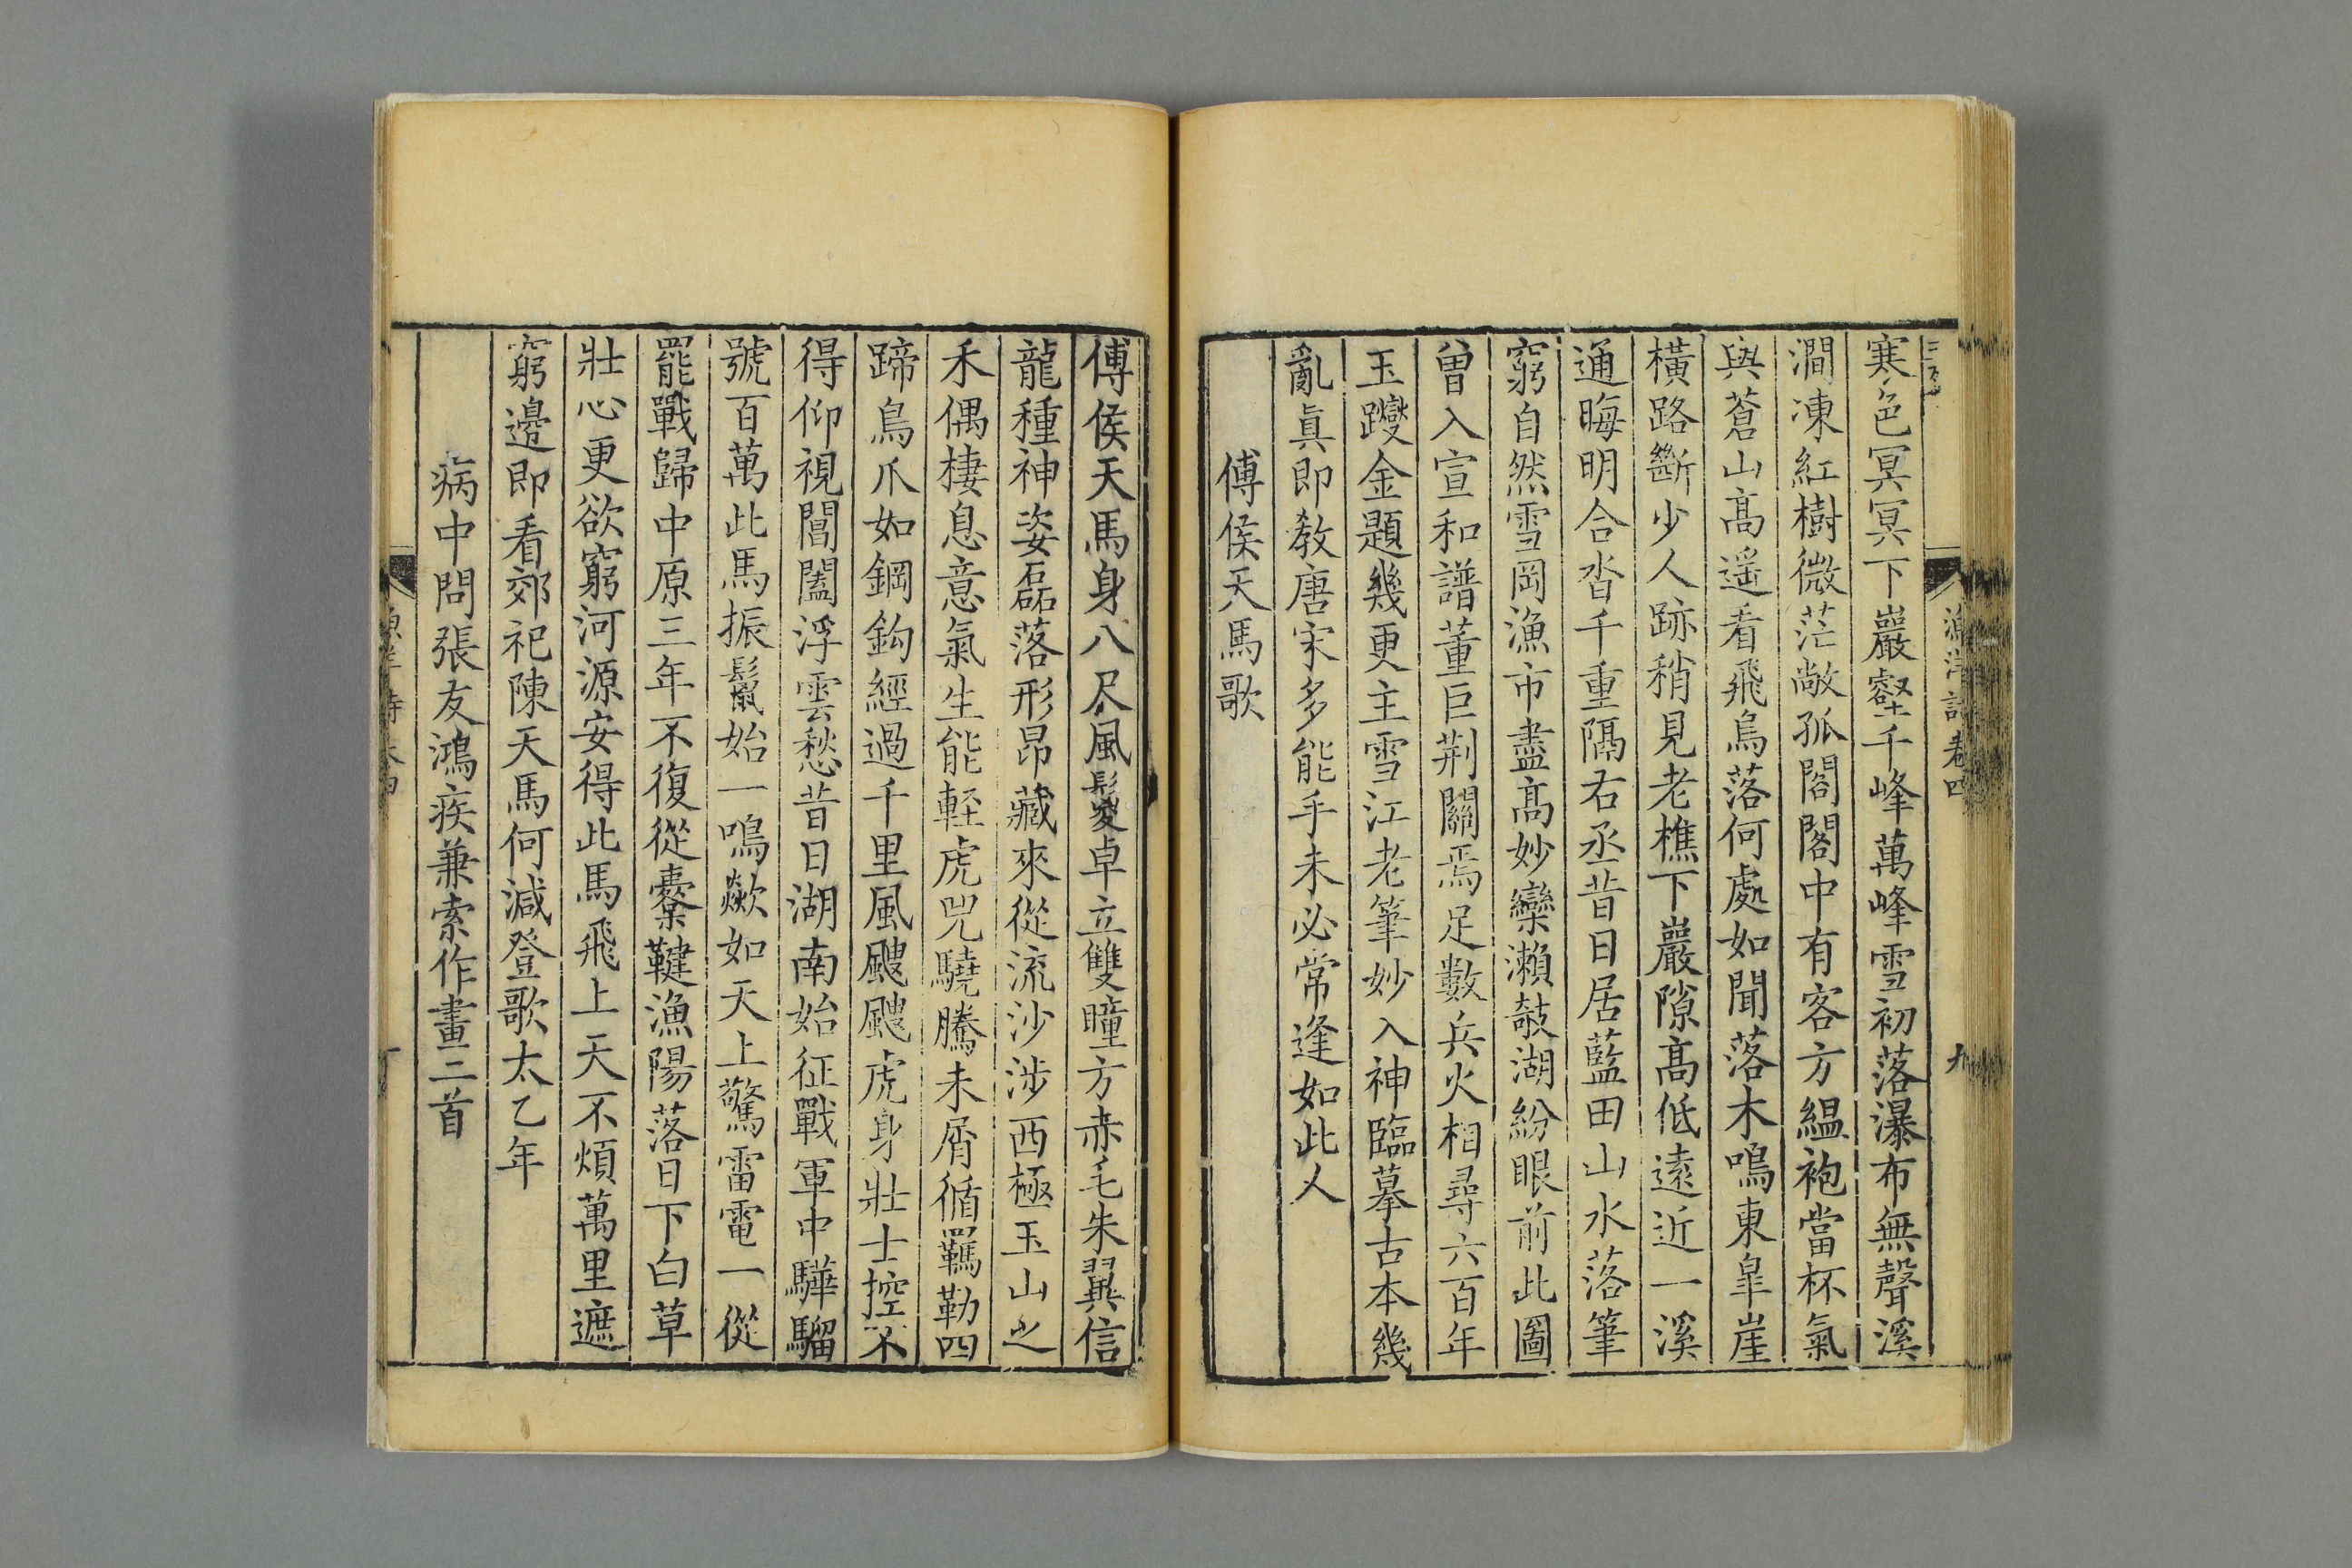 漁洋詩卷四
九
寒色冥冥下巖壑千峰萬峰雪初落瀑布無聲溪
澗凍紅樹微茫敞孤閣閣中有客方縕袍當杯氣
與蒼山髙遥看飛鳥落何處如聞落木鳴東皐崖
橫路斷少人跡稍見老樵下巖隙髙低逺近一溪
通晦明合沓千重隔右丞昔日居藍田山水落筆
窮自然雪岡漁市盡髙妙欒瀨攲湖紛眼前此圖
曾入宣和譜董巨荆關焉足數兵火相尋六百年
玉躞金題幾更主雪江老筆妙入神臨摹古本幾
亂眞即敎唐宋多能手未必常逢如此人
傅侯天馬歌
傅侯天馬身八尺風鬉卓立雙瞳方赤毛朱翼信
龍種神姿磊落形昂藏來從流沙涉西極玉山之
禾偶棲息意氣生能輕虎兕驍騰未屑循羈勒四
蹄鳥爪如鋼鈎經過千里風颼颼虎身壯士控不
得仰視閶闔浮雲愁昔日湖南始征戰軍中驊騮
號百萬此馬振鬣始一鳴歘如天上驚雷電一從
罷戰歸中原三年不復從櫜鞬漁陽落日下白草
壯心更欲窮河源安得此馬飛上天不煩萬里遮
窮邊即看郊祀陳天馬何減登歌太乙年
病中問張友鴻疾兼索作畫二首